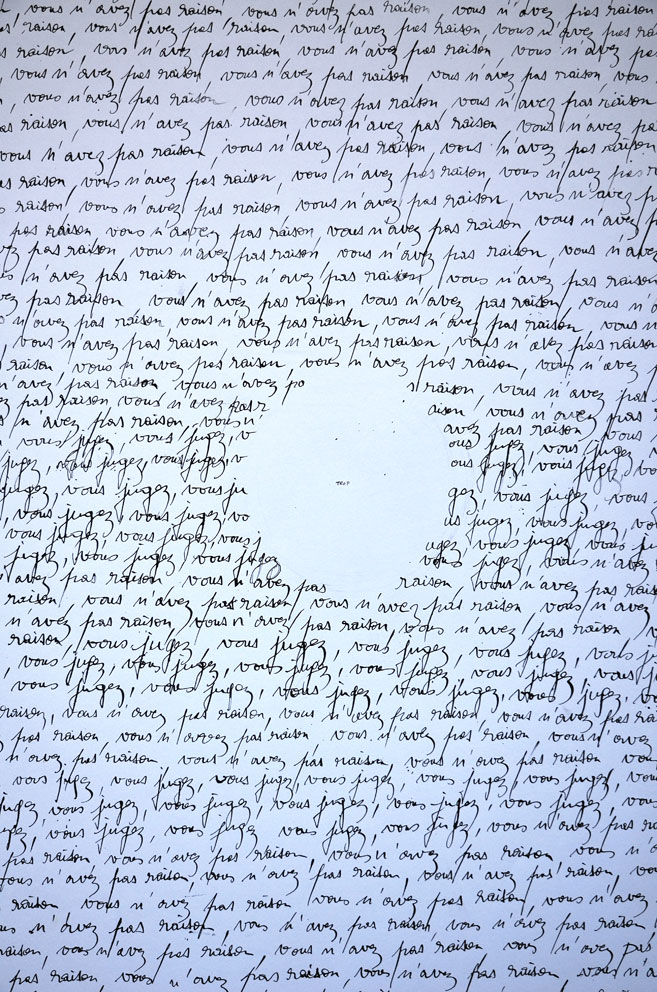 vous n'avez pas raison vous n'avez pas raison vous n'avez pas raison
raison, vous n'avez pas raison vous n'avez pas raison, vous n'avez pas
raison, vous n'avez pas raison vous n'avez pas raison vous n'avez pas
vous n'avez pas raison, vous n'avez pas raison vous n'avez pas raison vous
, vous n'avez pas raison, vous n'avez pas raison vous n'avez pas raison
raison, vous n'avez pas raison vous n'avez pas raison vous n'avez pas
vous n'avez pas raison, vous n'avez pas raison vous n'avez pas raison
raison, vous n'avez pas raison, vous n'avez pas raison, vous n'avez pas
raison, vous n'avez pas raison vous n'avez pas raison, vous n'avez
pas raison vous n'avez pas raison, vous n'avez pas raison vous n'avez
pas raison vous n'avez pas raison vous n'avez pas raison, vous n'avez
n'avez pas raison vous n'avez pas raison, vous n'avez pas raison
pas raison vous n'avez pas raison vous n'avez pas raison, vous n'
n'avez pas raison, vous n'avez pas raison, vous n'avez pas raison, vous n'
vous n'avez pas raison vous n'avez pas raison, vous n'avez pas raison
raison, vous n'avez pas raison, vous n'avez pas raison, vous n'avez
n'avez pas raison vous n'avez raison, vous n'avez pas
pas raison vous n'avez pas aison, vous n'avez pas
n'avez pas raison, vous n' avez pas raison vous
vous jugez, vous jugez, v ous jugez, vous
jugez, vous jugez, vous jugez, v ous jugez, vous jugez
jugez, vous jugez, vous ju gez, vous jugez, vous
vous jugez vous jugez, vo us jugez, vous jugez
vous jugez, vous jugez, vous j ugez, vous jugez, vous
jugez, vous jugez, vous jugez vous jugez, vous n'avez
n'avez pas raison, vous n'avez pas raison, vous n'avez pas
raison, vous n'avez pas raison, vous n'avez pas raison, vous n'avez
n'avez pas raison, vous n'avez pas raison, vous n'avez pas raison,
raison, vous jugez, vous jugez, vous jugez, vous jugez, vous
, vous jugez, vous jugez, vous jugez, vous jugez, vous jugez, vous
vous jugez, vous jugez, vous jugez, vous jugez, vous jugez,
raison, vous n'avez pas raison, vous n'avez pas raison, vous n'avez pas
pas raison, vous n'avez pas raison vous n'avez pas raison, vous n'avez
n'avez pas raison, vous n'avez pas raison, vous n'avez pas raison
vous jugez, vous jugez, vous jugez, vous jugez, vous jugez, vous jugez, vous
jugez vous jugez, vous jugez, vous jugez, vous jugez, vous jugez, vous
vous jugez, vous jugez vous jugez, vous jugez, vous n'avez pas
pas raison, vous n'avez pas raison, vous n'avez pas raison, vous n'
vous n'avez pas raison, vous n'avez pas raison, vous n'avez pas raison, vous
raison, vous n'avez pas raison, vous n'avez pas raison, vous n'avez
n'avez pas raison, vous n'avez pas raison, vous n'avez pas raison
raison, vous n'avez pas raison, vous n'avez pas raison vous n'avez pas
pas raison, vous n'avez pas raison, vous n'avez pas raison, vous n'avez